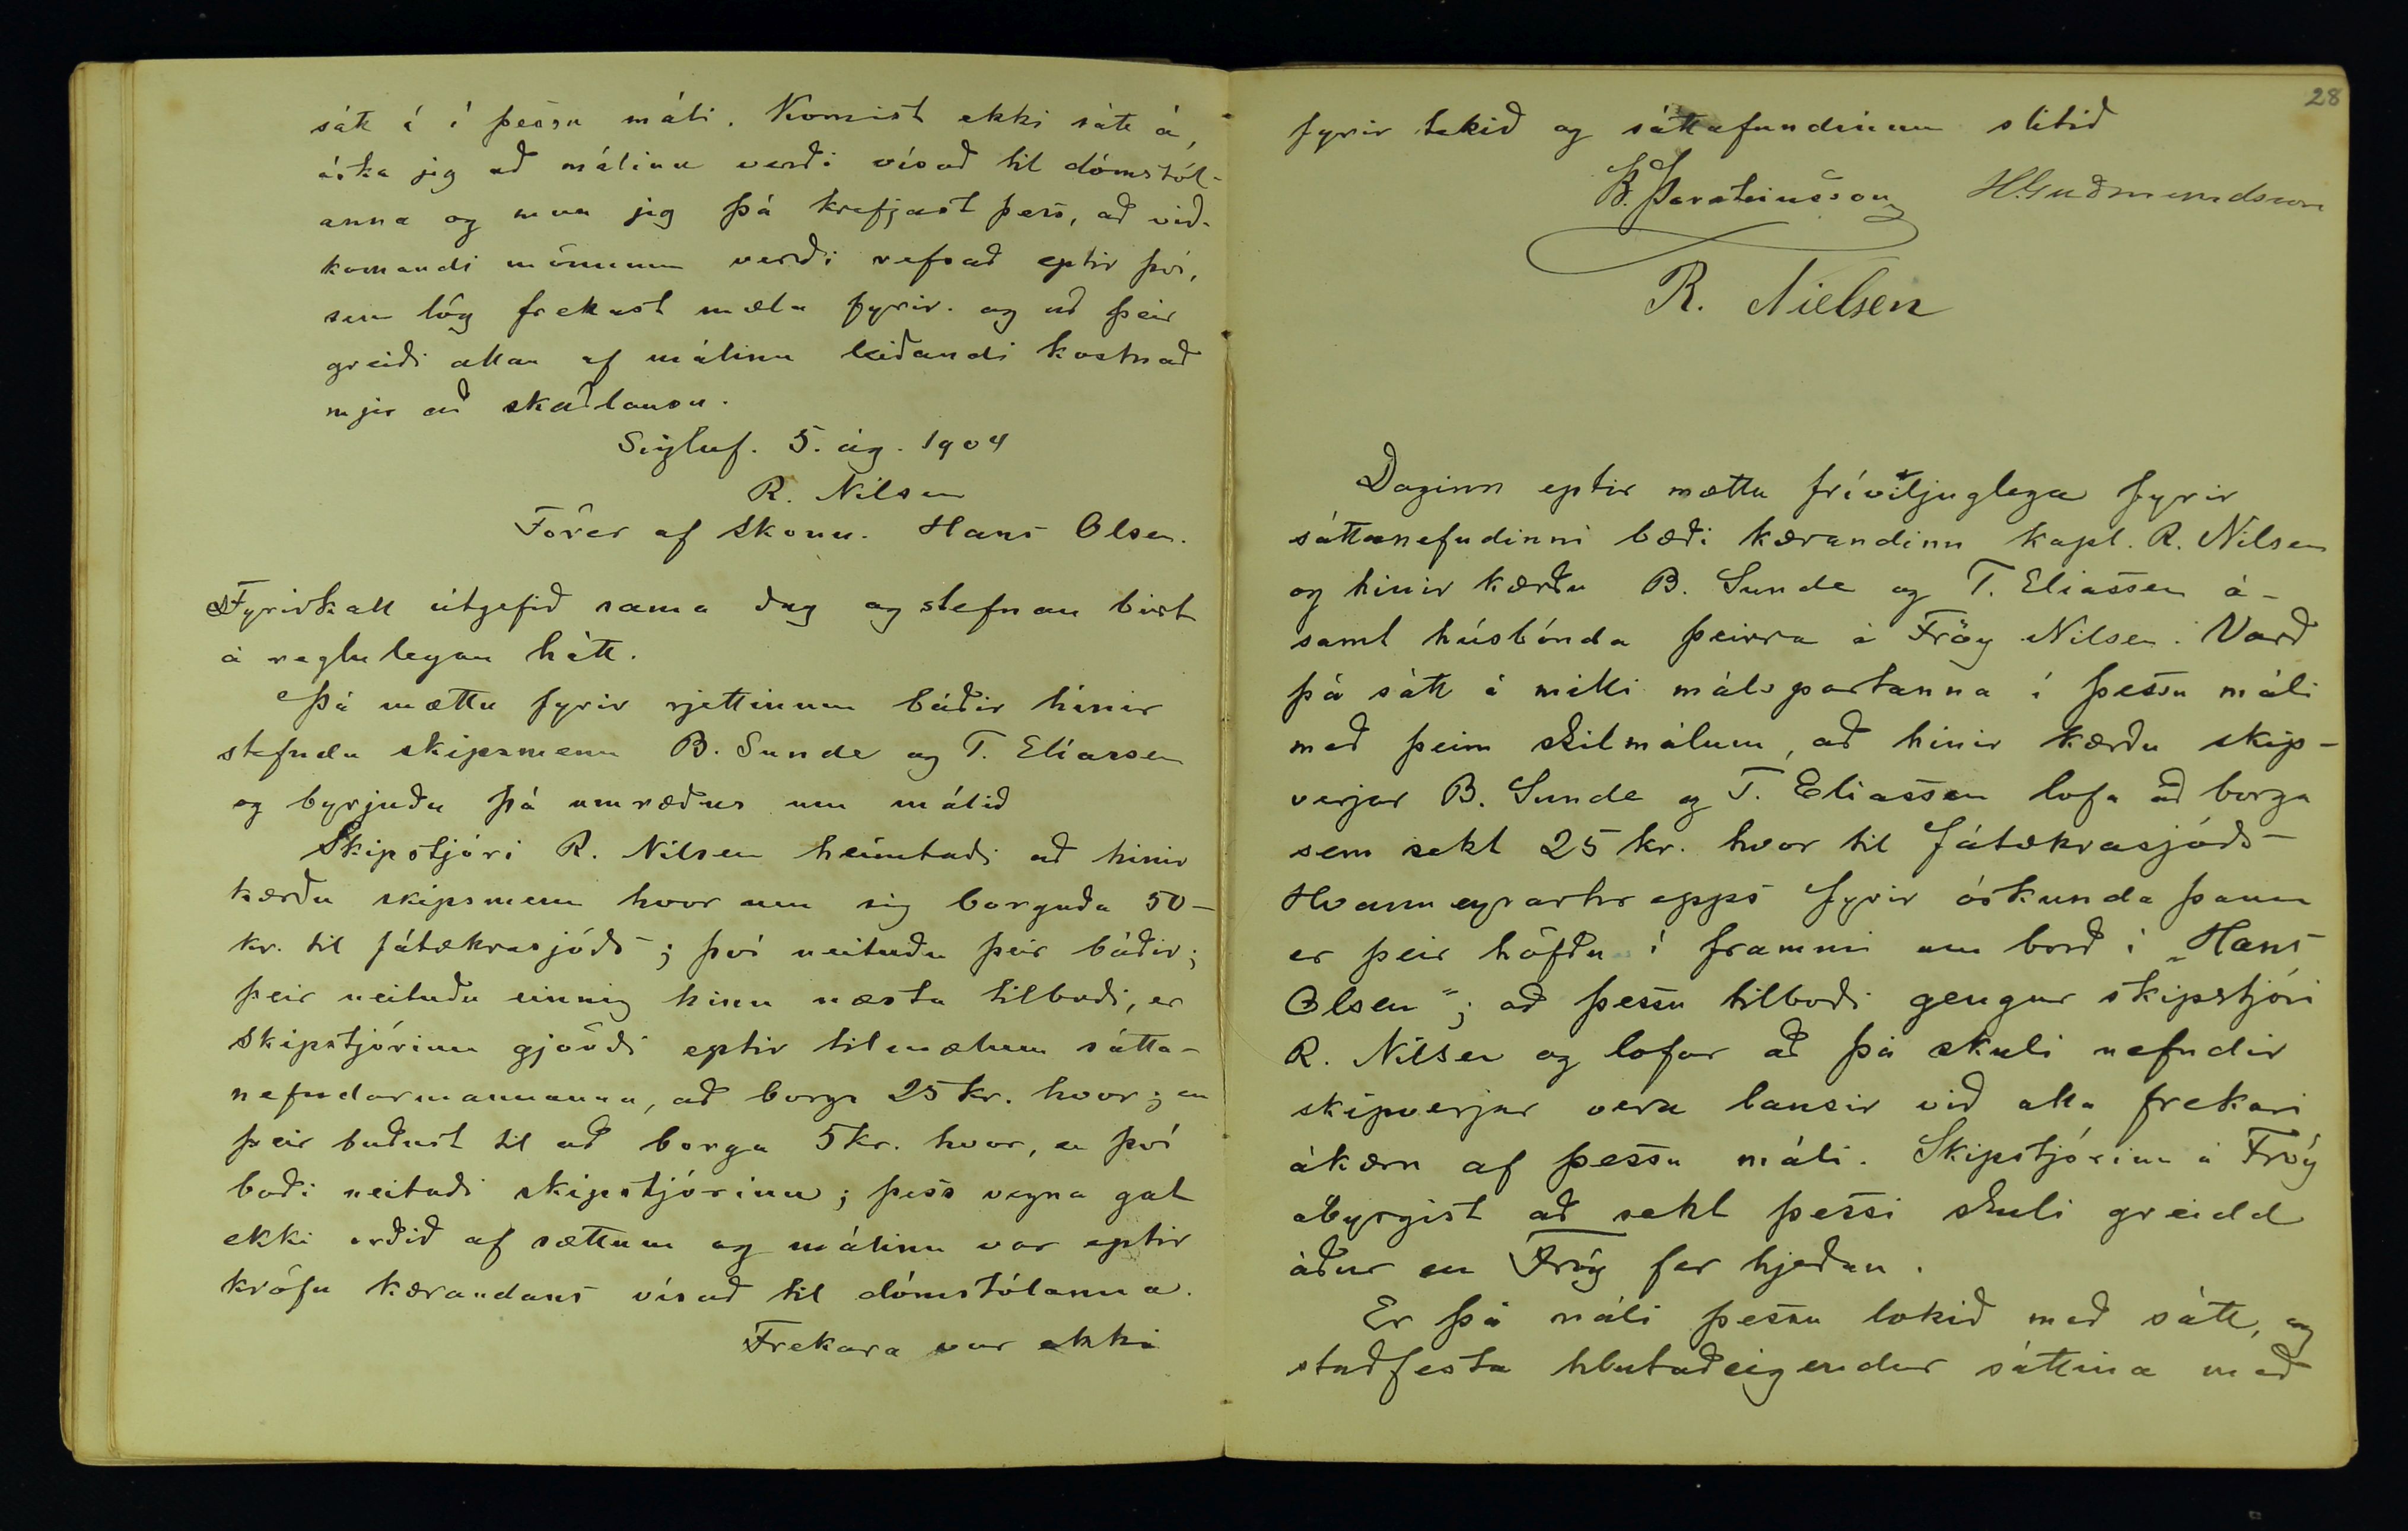 sátt á í þessu máli. Komist ekki sátt á,
óska jeg að málinu verði vísað til dómstól-
anna og mun jeg þá krefjast þess, að við-
komandi mönnum verði refsað eptir því,
sem lög frekast mæla fyrir. og að þeir
greiði allan af málinu leiðandi kostnað
mjer að skaðlausu.
Sigluf. 5. ág. 1904
R. Nilsen
Förer af Skonn. Hans Olsen.
Fyrirkall útgefið sama dag og stefnan birt
á reglulegan hátt.
Þá mættu fyrir rjettinum báðir hinir
stefndu skipsmenn B. Sunde og T. Elíassen
og byrjuðu þá umræður um málið
Skipstjóri R. Nilsen heimtaði að hinir
kærðu skipsmenn hvor um sig borguðu 50-
kr. til fátækrasjóðs; því neituðu þeir báðir;
þeir neituðu einnig hinu næsta tilboði, er
skipstjórinn gjörði eptir tilmælum sátta-
nefndarmannanna, að borga 25 kr. hvor; en
þeir buðust til að borga 5 kr. hvor, en því
boði neitaði skipstjórinn; þess vegna gat
ekki orðið af sættum og málinu var eptir
kröfu kærandans vísað til dómstólanna.
Frekara var ekki
28
fyrir tekið og sáttafundinum slitið
B. Þorsteinsson H. Guðmundsson
R. Nielsen
Daginn eptir mættu fríviljuglega fyrir
sáttanefndinni bæði kærandinn kapt. R. Nilsen
og hinir kærðu B. Sunde og T. Eliassen á-
samt húsbónda þeirra á Fröy Nilsen. Varð
þá sátt á milli málspartanna í þessu máli
með þeim skilmálum, að hinir kærðu skip-
verjar B. Sunde og T. Eliassen lofa að borga
sem sekt 25 kr. hvor til fátækrasjóðs
Hvanneyrarhrepps fyrir óskunda þann
er þeir höfðu í frammi um borð í „Hans
Olsen“; að þessu tilboði gengur skipstjóri
R. Nilsen og lofar að þá skuli nefndir
skipverjar vera lausir við alla frekari
ákæru af þessu máli. Skipstjórinn á Fröy
ábyrgist að sekt þessi skuli greidd
áður en Fröy fer hjeðan.
Er þá máli þessu lokið með sátt, og
staðfesta hlutaðeigendur sáttina með